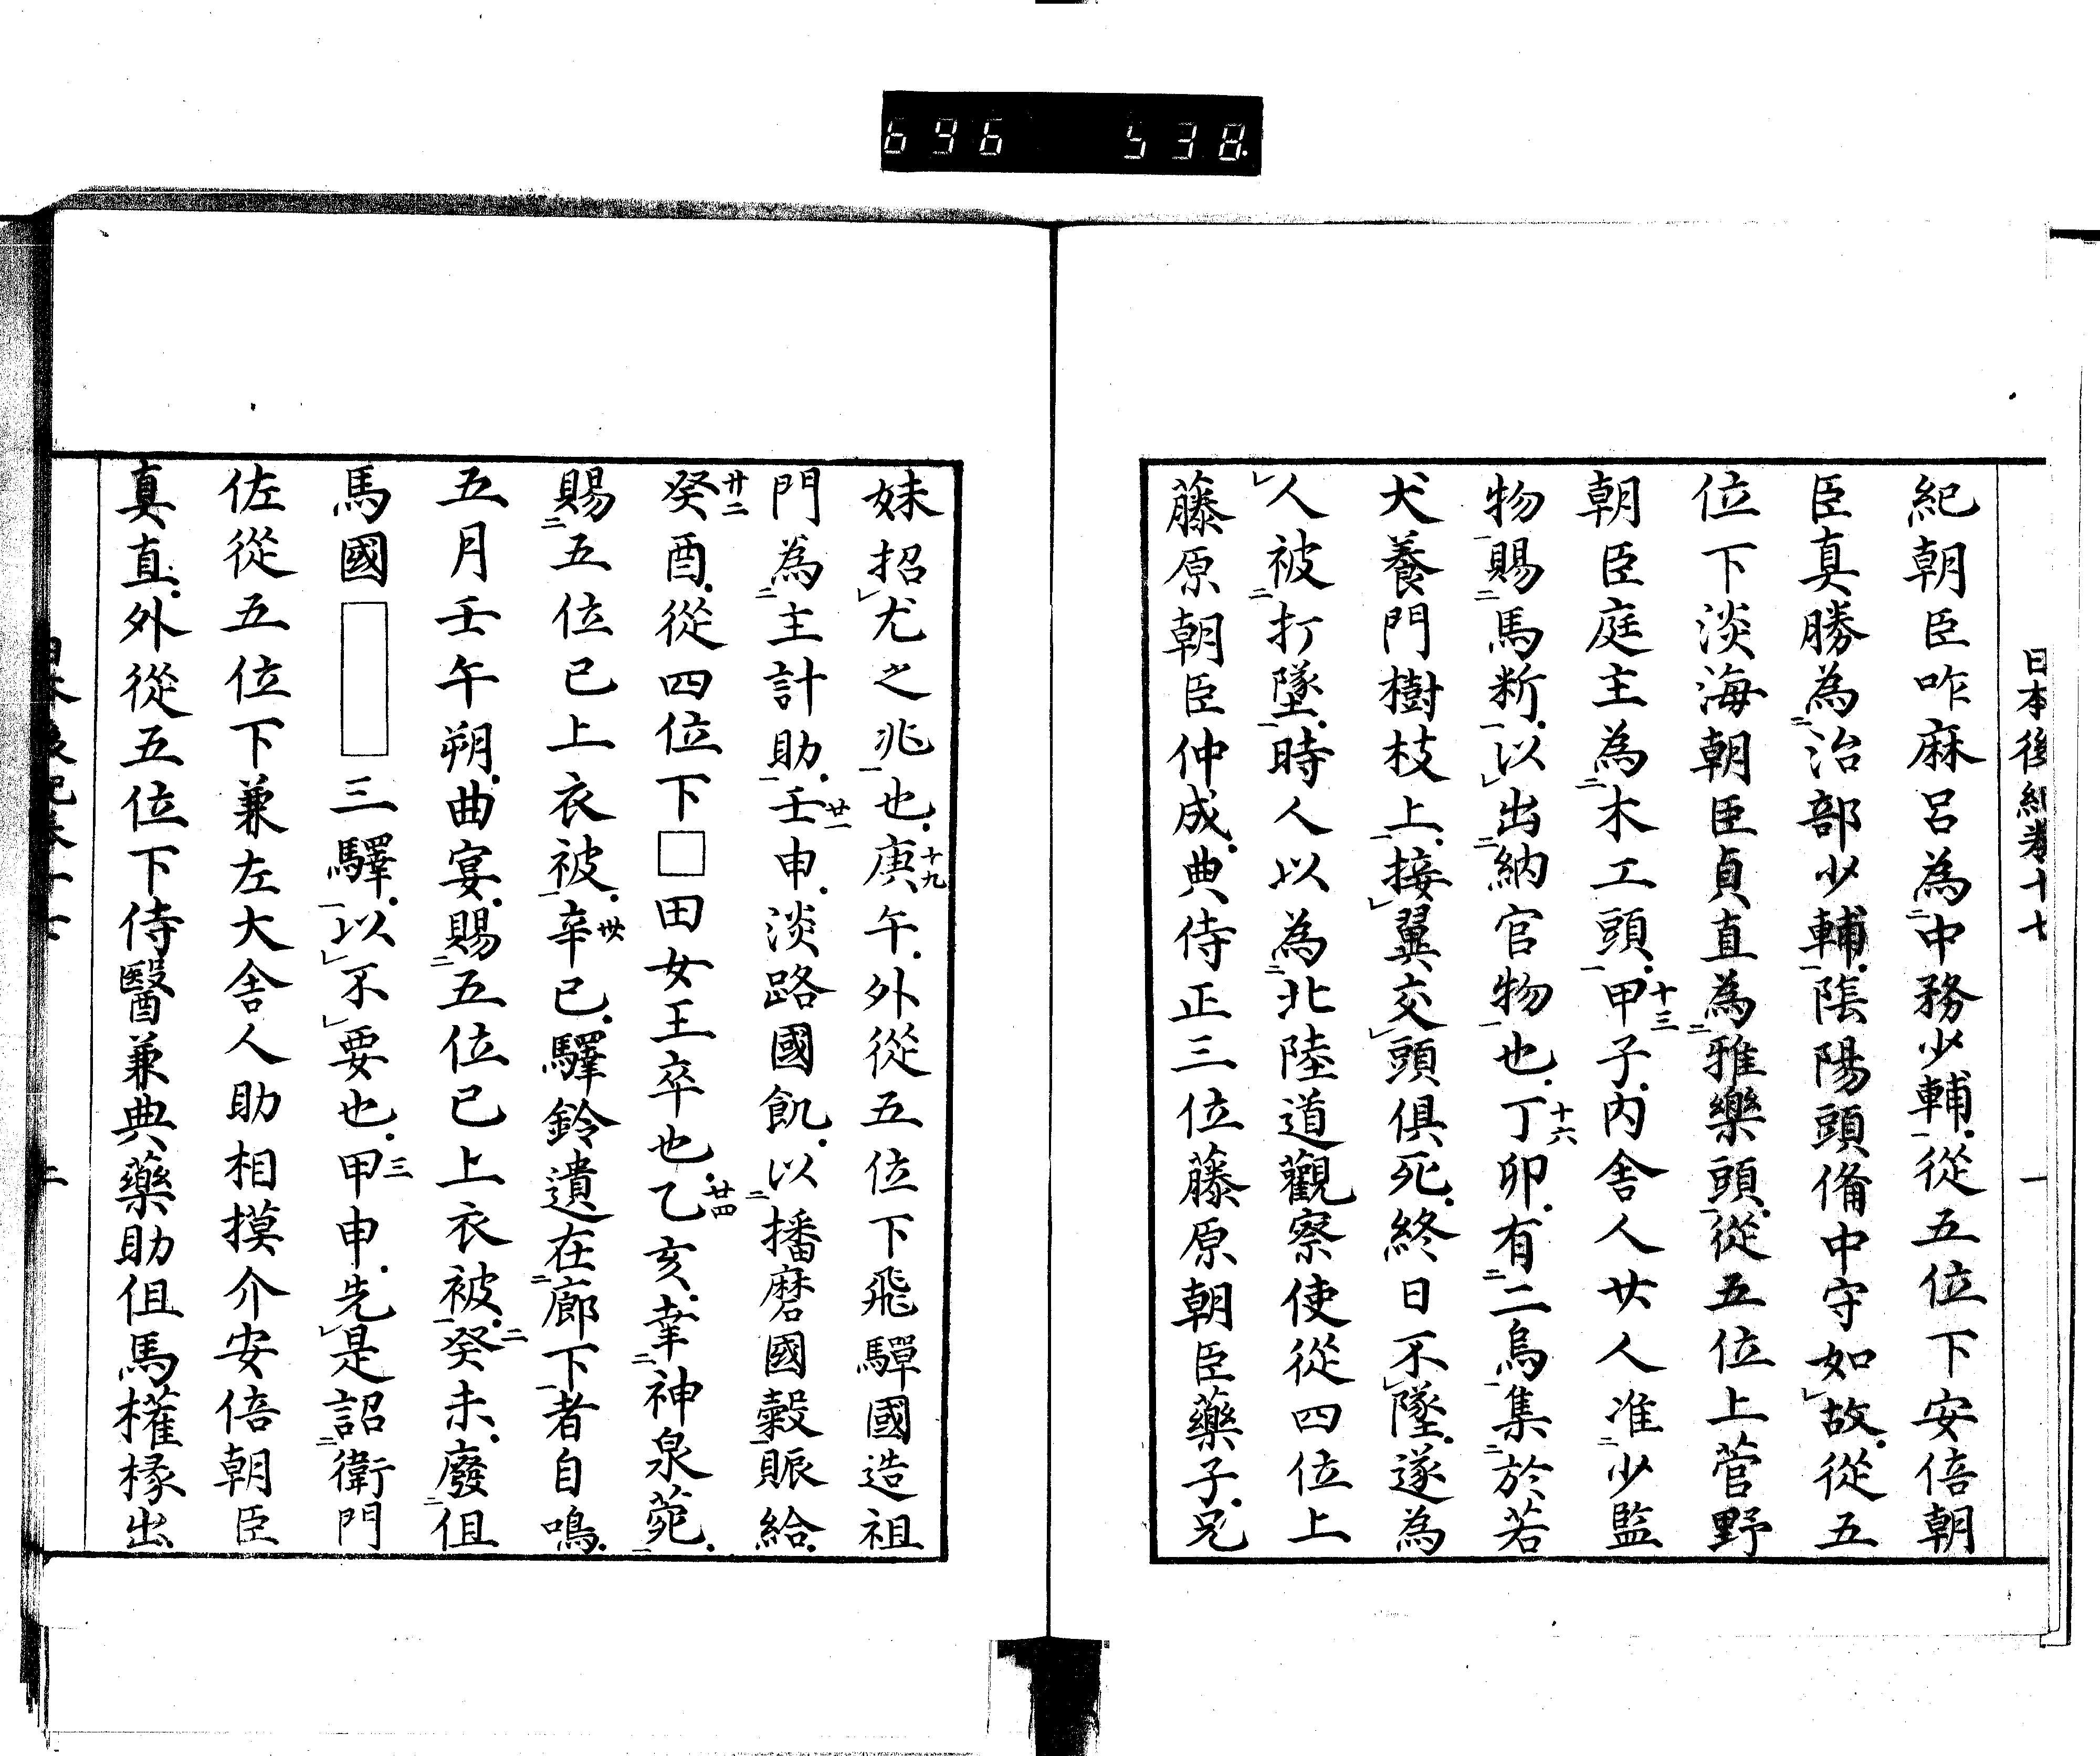 696 538
日本後紀卷十七 一
紀朝臣咋麻呂為中務少輔從五位下安倍朝
臣真勝為治部少輔陰陽頭備中守如故從五
位下淡海朝臣貞直為雅樂頭從五位上菅野
朝臣庭主為木工頭甲子十三內舍人廿人准少監
物賜馬斷以出納官物也丁卯十六有二烏集於若
犬養門樹枝上接翼交頭俱死終日不墜遂為
人被打墜時人以為北陸道觀察使從四位上
藤原朝臣仲成典侍正三位藤原朝臣藥子兄
妹招尤之兆也庚午十九外從五位下飛驒國造祖
門為主計助壬申廿一淡路國飢以播磨國穀賑給
癸酉廿二從四位下□田女王卒也乙亥廿四幸神泉菀
賜五位已上衣被辛巳卅驛鈴遺在廊下者自鳴
五月壬午朔曲宴賜五位已上衣被癸未二廢但
馬國□三驛以不要也甲申三先是詔衛門
佐從五位下兼左大舍人助相摸介安倍朝臣
真直外從五位下侍醫兼典藥助但馬權掾出